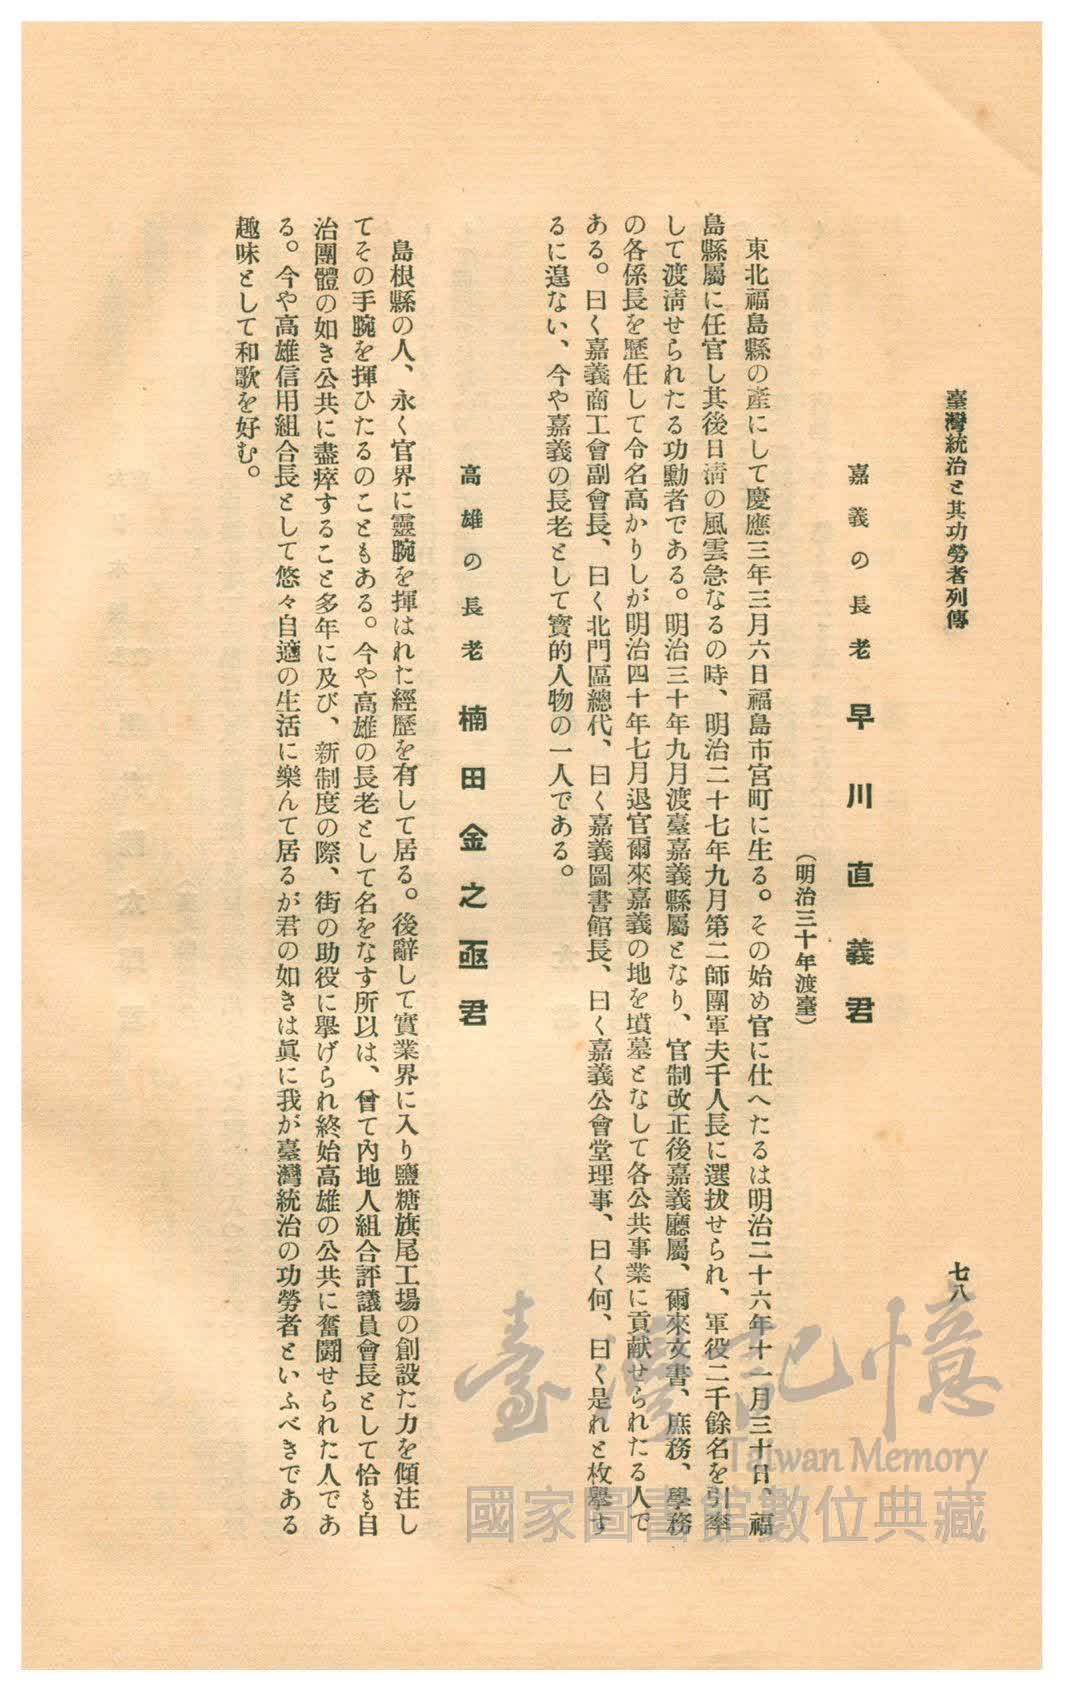 臺灣統治と其功勞者列傳
七八
嘉義の長老 早川直義君
(明治三十年渡臺)
東北福島縣の產にして慶應三年三月六日福島市宮町に生る。その始め官に仕へたるは明治二十六年十一月三十日、福
島縣屬に任官し其後日淸の風雲急なるの時、明治二十七年九月第二師團軍夫千人長に選拔せられ、軍役二千餘名を引率
して渡淸せられたる功勳者である。明治三十年九月渡臺嘉義縣屬となり、官制改正後嘉義廳屬、爾來文書、庶務、學務
の各係長を歷任して令名高かりしが明治四十年七月退官爾來嘉義の地を墳墓となして各公共事業に貢献せられたる人で
ある。曰く嘉義商工會副會長、曰く北門區總代、曰く嘉義圖書館長、曰く嘉義公會堂理事、曰く何、曰く是れと枚擧す
るに遑ない、今や嘉義の長老として寳的人物の一人である。
高雄の長老 楠田金之亟君
島根縣の人、永く官界に靈腕を揮はれた經歷を有して居る。後辭して實業界に入り鹽糖旗尾工場の創設た力を傾注し
てその手腕を揮ひたるのこともある。今や高雄の長老として名をなす所以は、曾て內地人組合評議員會長として恰も自
治團體の如き公共に盡瘁すること多年に及び、新制度の際、街の助役に擧げられ終始高雄の公共に奮鬪せられた人であ
る。今や高雄信用組合長として悠々自適の生活に樂んて居るが君の如きは眞に我が臺灣統治の功勞者といふべきである
趣味として和歌を好む。
臺灣記憶
Taiwan Memory
國家圖書館數位典藏